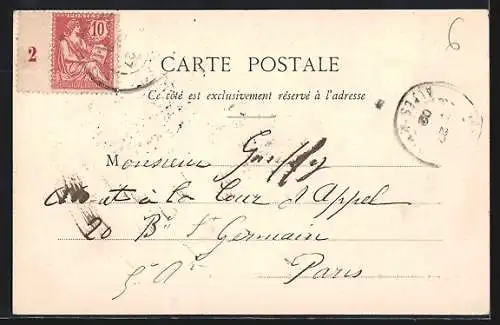 POSTES
10
2
CARTE POSTALE
Ce côté est exclusivement réservé à l'adresse
6
ALPES
Monsieur
à la Cour d'Appel
20 Bd St Germain
Paris